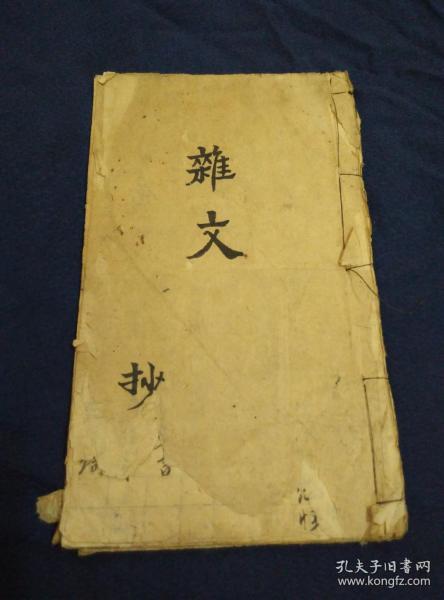 雜文
抄
孔夫子旧书网
www.kongfz.com